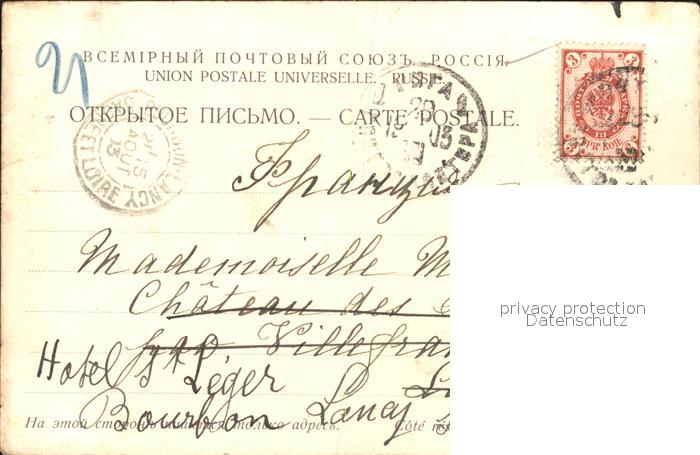 ВСЕМІРНЫЙ ПОЧТОВЫЙ СОЮЗЪ. РОССІЯ.
UNION POSTALE UNIVERSELLE. RUSSIE.
ОТКРЫТОЕ ПИСЬМО. — CARTE POSTALE.
3 3
BOURBON-LANCY
15
AOUT
03
ET LOIRE
Франц
Mademoiselle M
Château des
Villefran
Hotel St Léger
Bourbon Lancy
На этой сторонѣ пишется только адресъ. Côté
privacy protection
Datenschutz